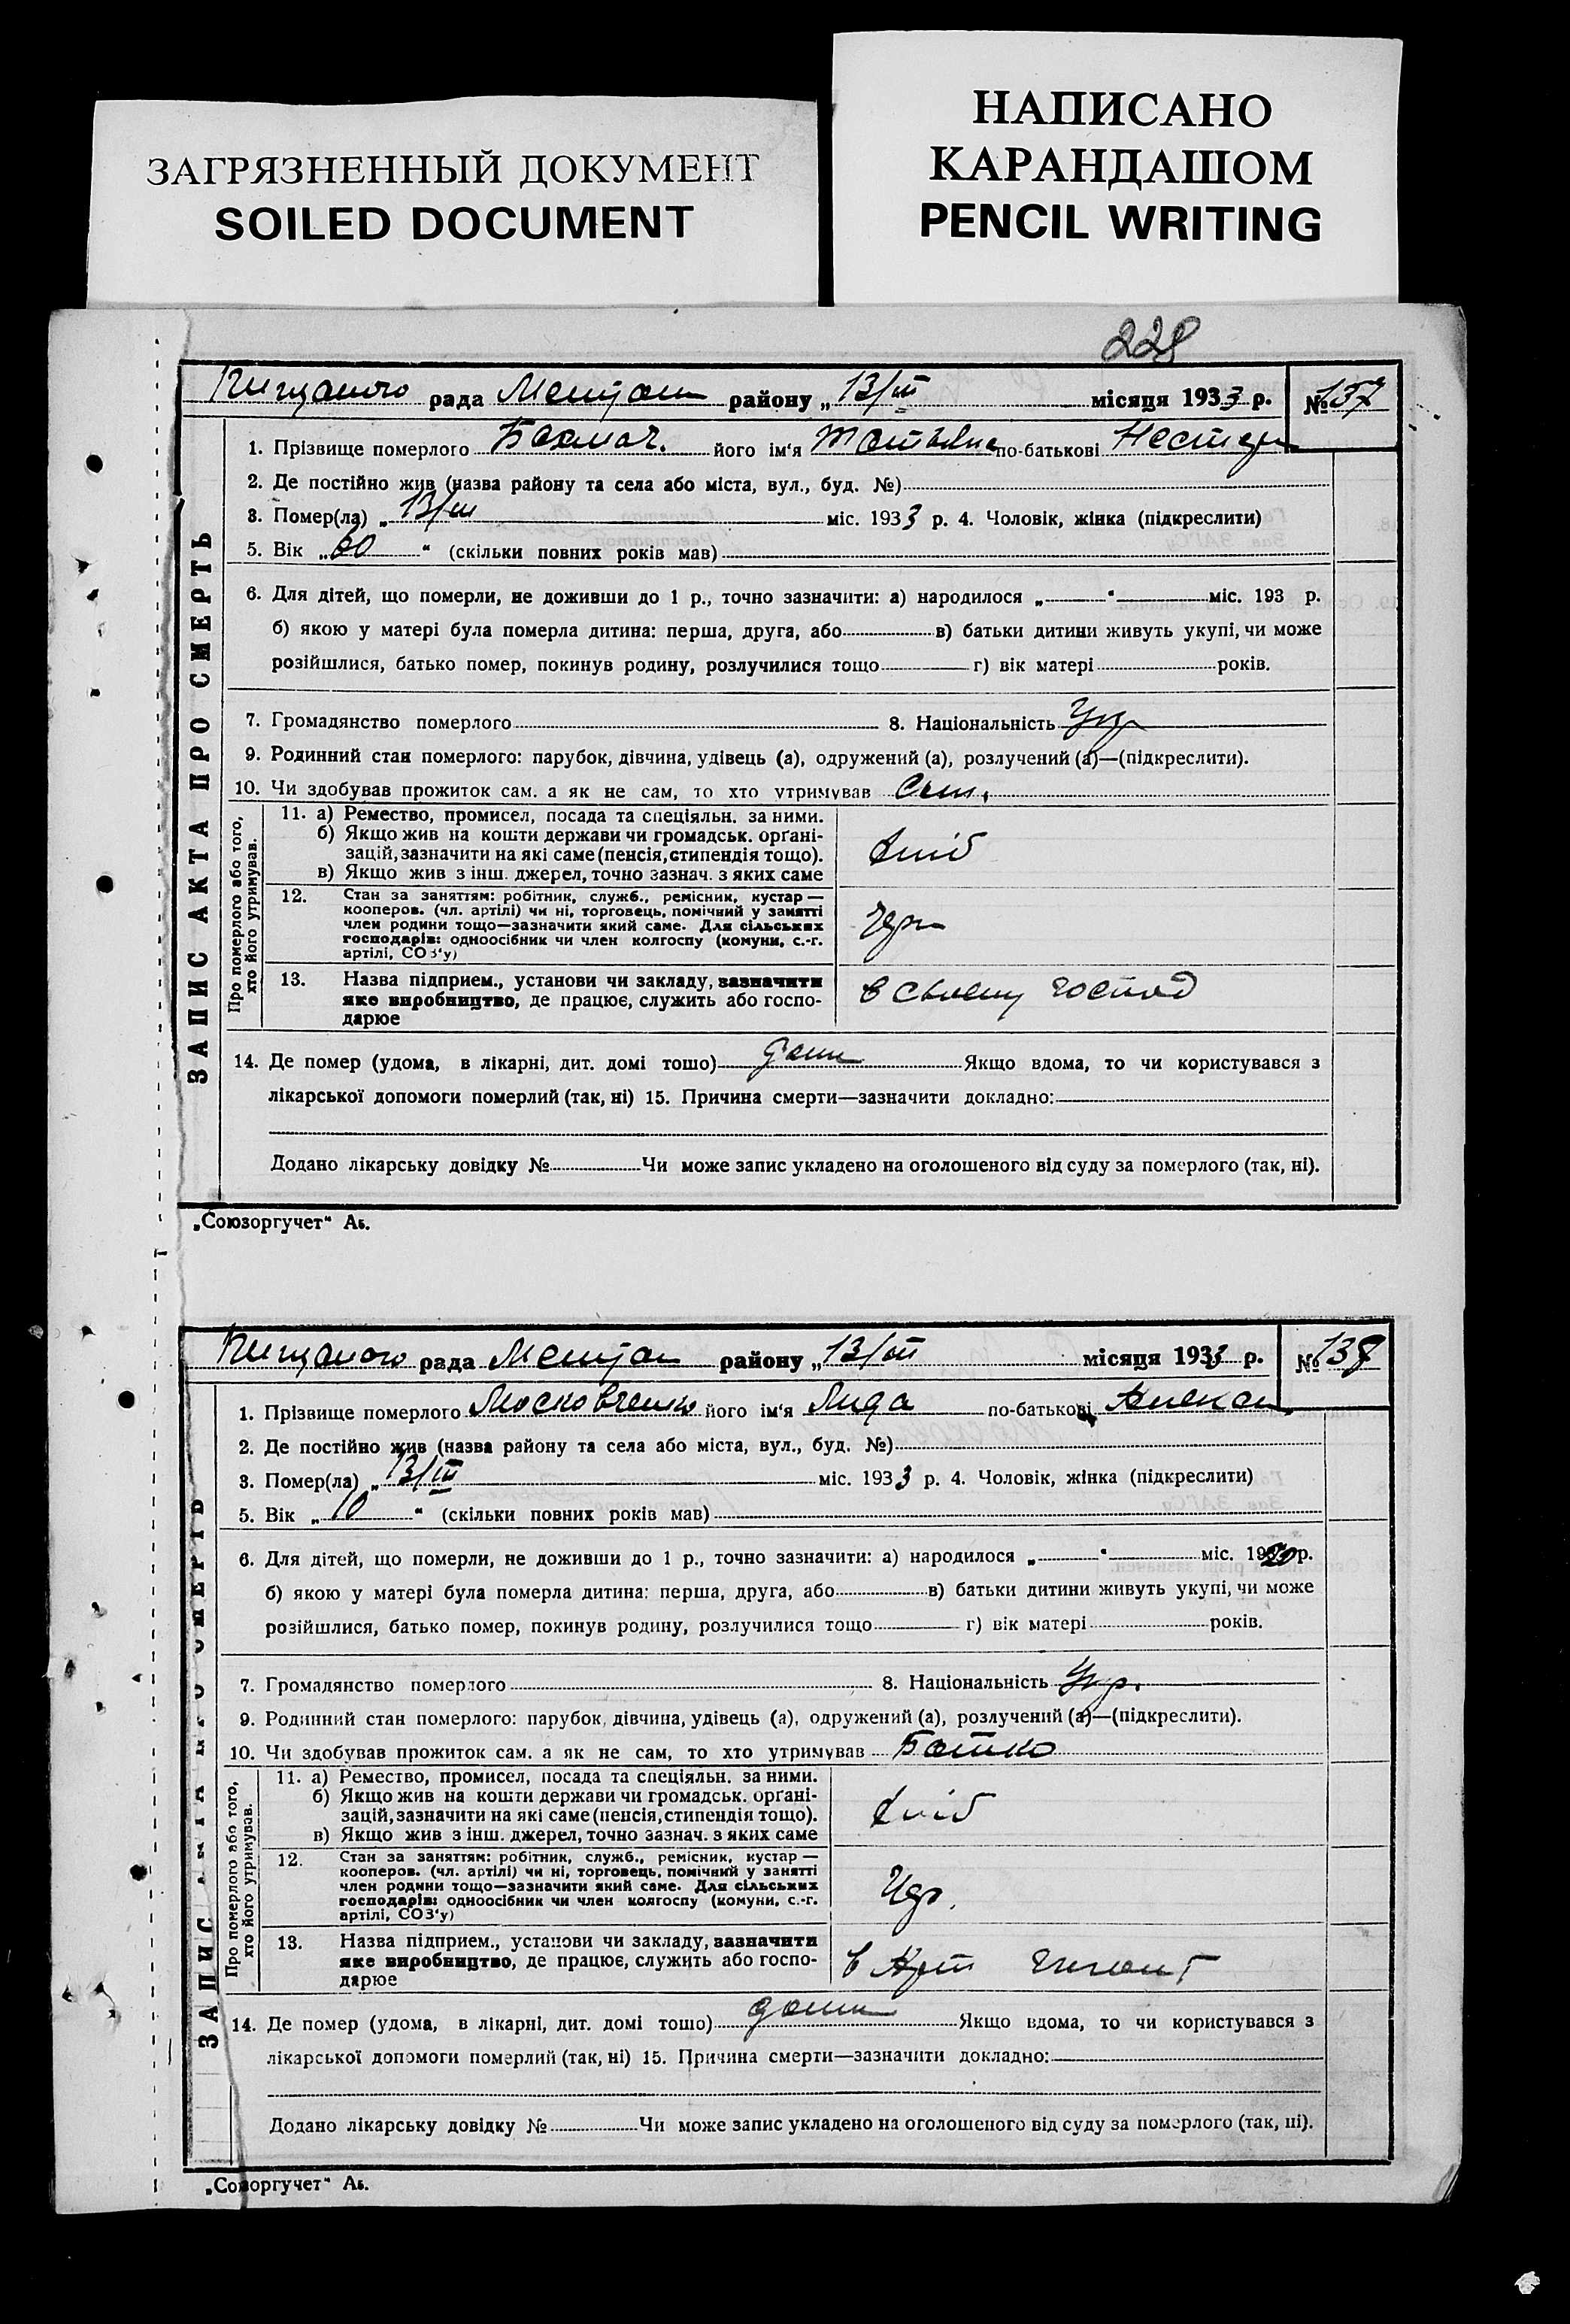 НАПИСАНО
КАРАНДАШОМ
PENCIL WRITING
ЗАГРЯЗНЕННЫЙ ДОКУМЕНТ
SOILED DOCUMENT
228
рада районy „ 13/III місяця 1933 р. № 137
ЗАПИС АКТА ПРО СМЕРТЬ
1. Прізвище померлого Бахмач. його ім'я Татьяна по-батькові Нестер
2. Де постійно жив (назва району та села або міста, вул., буд. №)
3. Помер(ла) „ 13/III міс. 1933 р. 4. Чоловік, жінка (підкреслити)
5. Вік „ 60 “ (скільки повних років мав)
6. Для дітей, що померли, не доживши до 1 р., точно зазначити: а) народилося „ “ міс. 193 р.
б) якою у матері була померла дитина: перша, друга, або в) батьки дитини живуть укупі, чи може
розійшлися, батько помер, покинув родину, розлучилися тощо г) вік матері років.
7. Громадянство померлого 8. Національність Укр
9. Родинний стан померлого: парубок, дівчина, удівець (а), одружений (а), розлучений (а)—(підкреслити).
10. Чи здобував прожиток сам. а як не сам, то хто утримував Сам.
Про померлого або того,
хто його утримував.
11. а) Ремество, промисел, посада та спеціяльн. за ними.
б) Якщо жив на кошти держави чи громадськ. орґані-
зацій, зазначити на які саме (пенсія, стипендія тощо).
в) Якщо жив з інш. джерел, точно зазнач. з яких саме
хліб
12. Стан за заняттям: робітник, служб., ремісник, кустар —
кооперов. (чл. артілі) чи ні, торговець, помічний у занятті
член родини тощо—зазначити який саме. Для сільських
господарів: одноосібник чи член колгоспу (комуни, с.-г.
артілі, СОЗ'у)
13. Назва підприєм., установи чи закладу, зазначити
яке виробництво, де працює, служить або госпо-
дарює
в своему господ
14. Де помер (удома, в лікарні, дит. домі тошо) дома Якщо вдома, то чи користувався з
лікарської допомоги померлий (так, ні) 15. Причина смерти—зазначити докладно:
Додано лікарську довідку № Чи може запис укладено на оголошеного від суду за померлого (так, ні).
„Союзоргучет“ Аб.
рада району „ 13/III місяця 1933 р. № 138
ЗАПИС АКТА ПРО СМЕРТЬ
1. Прізвище померлого Московченко його ім'я Лида по-батькові Алексан
2. Де постійно жив (назва району та села або міста, вул., буд. №)
3. Помер(ла) „ 13/III міс. 1933 р. 4. Чоловік, жінка (підкреслити)
5. Вік „ 10 “ (скільки повних років мав)
6. Для дітей, що померли, не доживши до 1 р., точно зазначити: а) народилося „ “ міс. 1920 р.
б) якою у матері була померла дитина: перша, друга, або в) батьки дитини живуть укупі, чи може
розійшлися, батько помер, покинув родину, розлучилися тощо г) вік матері років.
7. Громадянство померлого 8. Національність Укр.
9. Родинний стан померлого: парубок, дівчина, удівець (а), одружений (а), розлучений (а)—(підкреслити).
10. Чи здобував прожиток сам. а як не сам, то хто утримував Батько
Про померлого або того,
хто його утримував.
11. а) Ремество, промисел, посада та спеціяльн. за ними.
б) Якщо жив на кошти держави чи громадськ. орґані-
зацій, зазначити на які саме (пенсія, стипендія тощо).
в) Якщо жив з інш. джерел, точно зазнач. з яких саме
хліб
12. Стан за заняттям: робітник, служб., ремісник, кустар —
кооперов. (чл. артілі) чи ні, торговець, помічний у занятті
член родини тощо—зазначити який саме. Для сільських
господарів: одноосібник чи член колгоспу (комуни, с.-г.
артілі, СОЗ'у)
13. Назва підприєм., установи чи закладу, зазначити
яке виробництво, де працює, служить або госпо-
дарює
в Арт Гигант
14. Де помер (удома, в лікарні, дит. домі тошо) дома Якщо вдома, то чи користувався з
лікарської допомоги померлий (так, ні) 15. Причина смерти—зазначити докладно:
Додано лікарську довідку № Чи може запис укладено на оголошеного від суду за померлого (так, ні).
„Союзоргучет“ Аб.